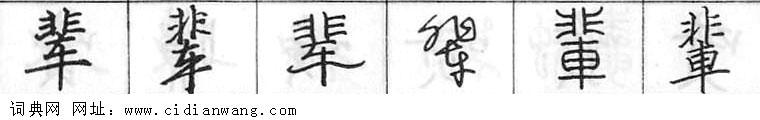 辈 辈 辈 辈 輩 輩
词典网 网址：www.cidianwang.com